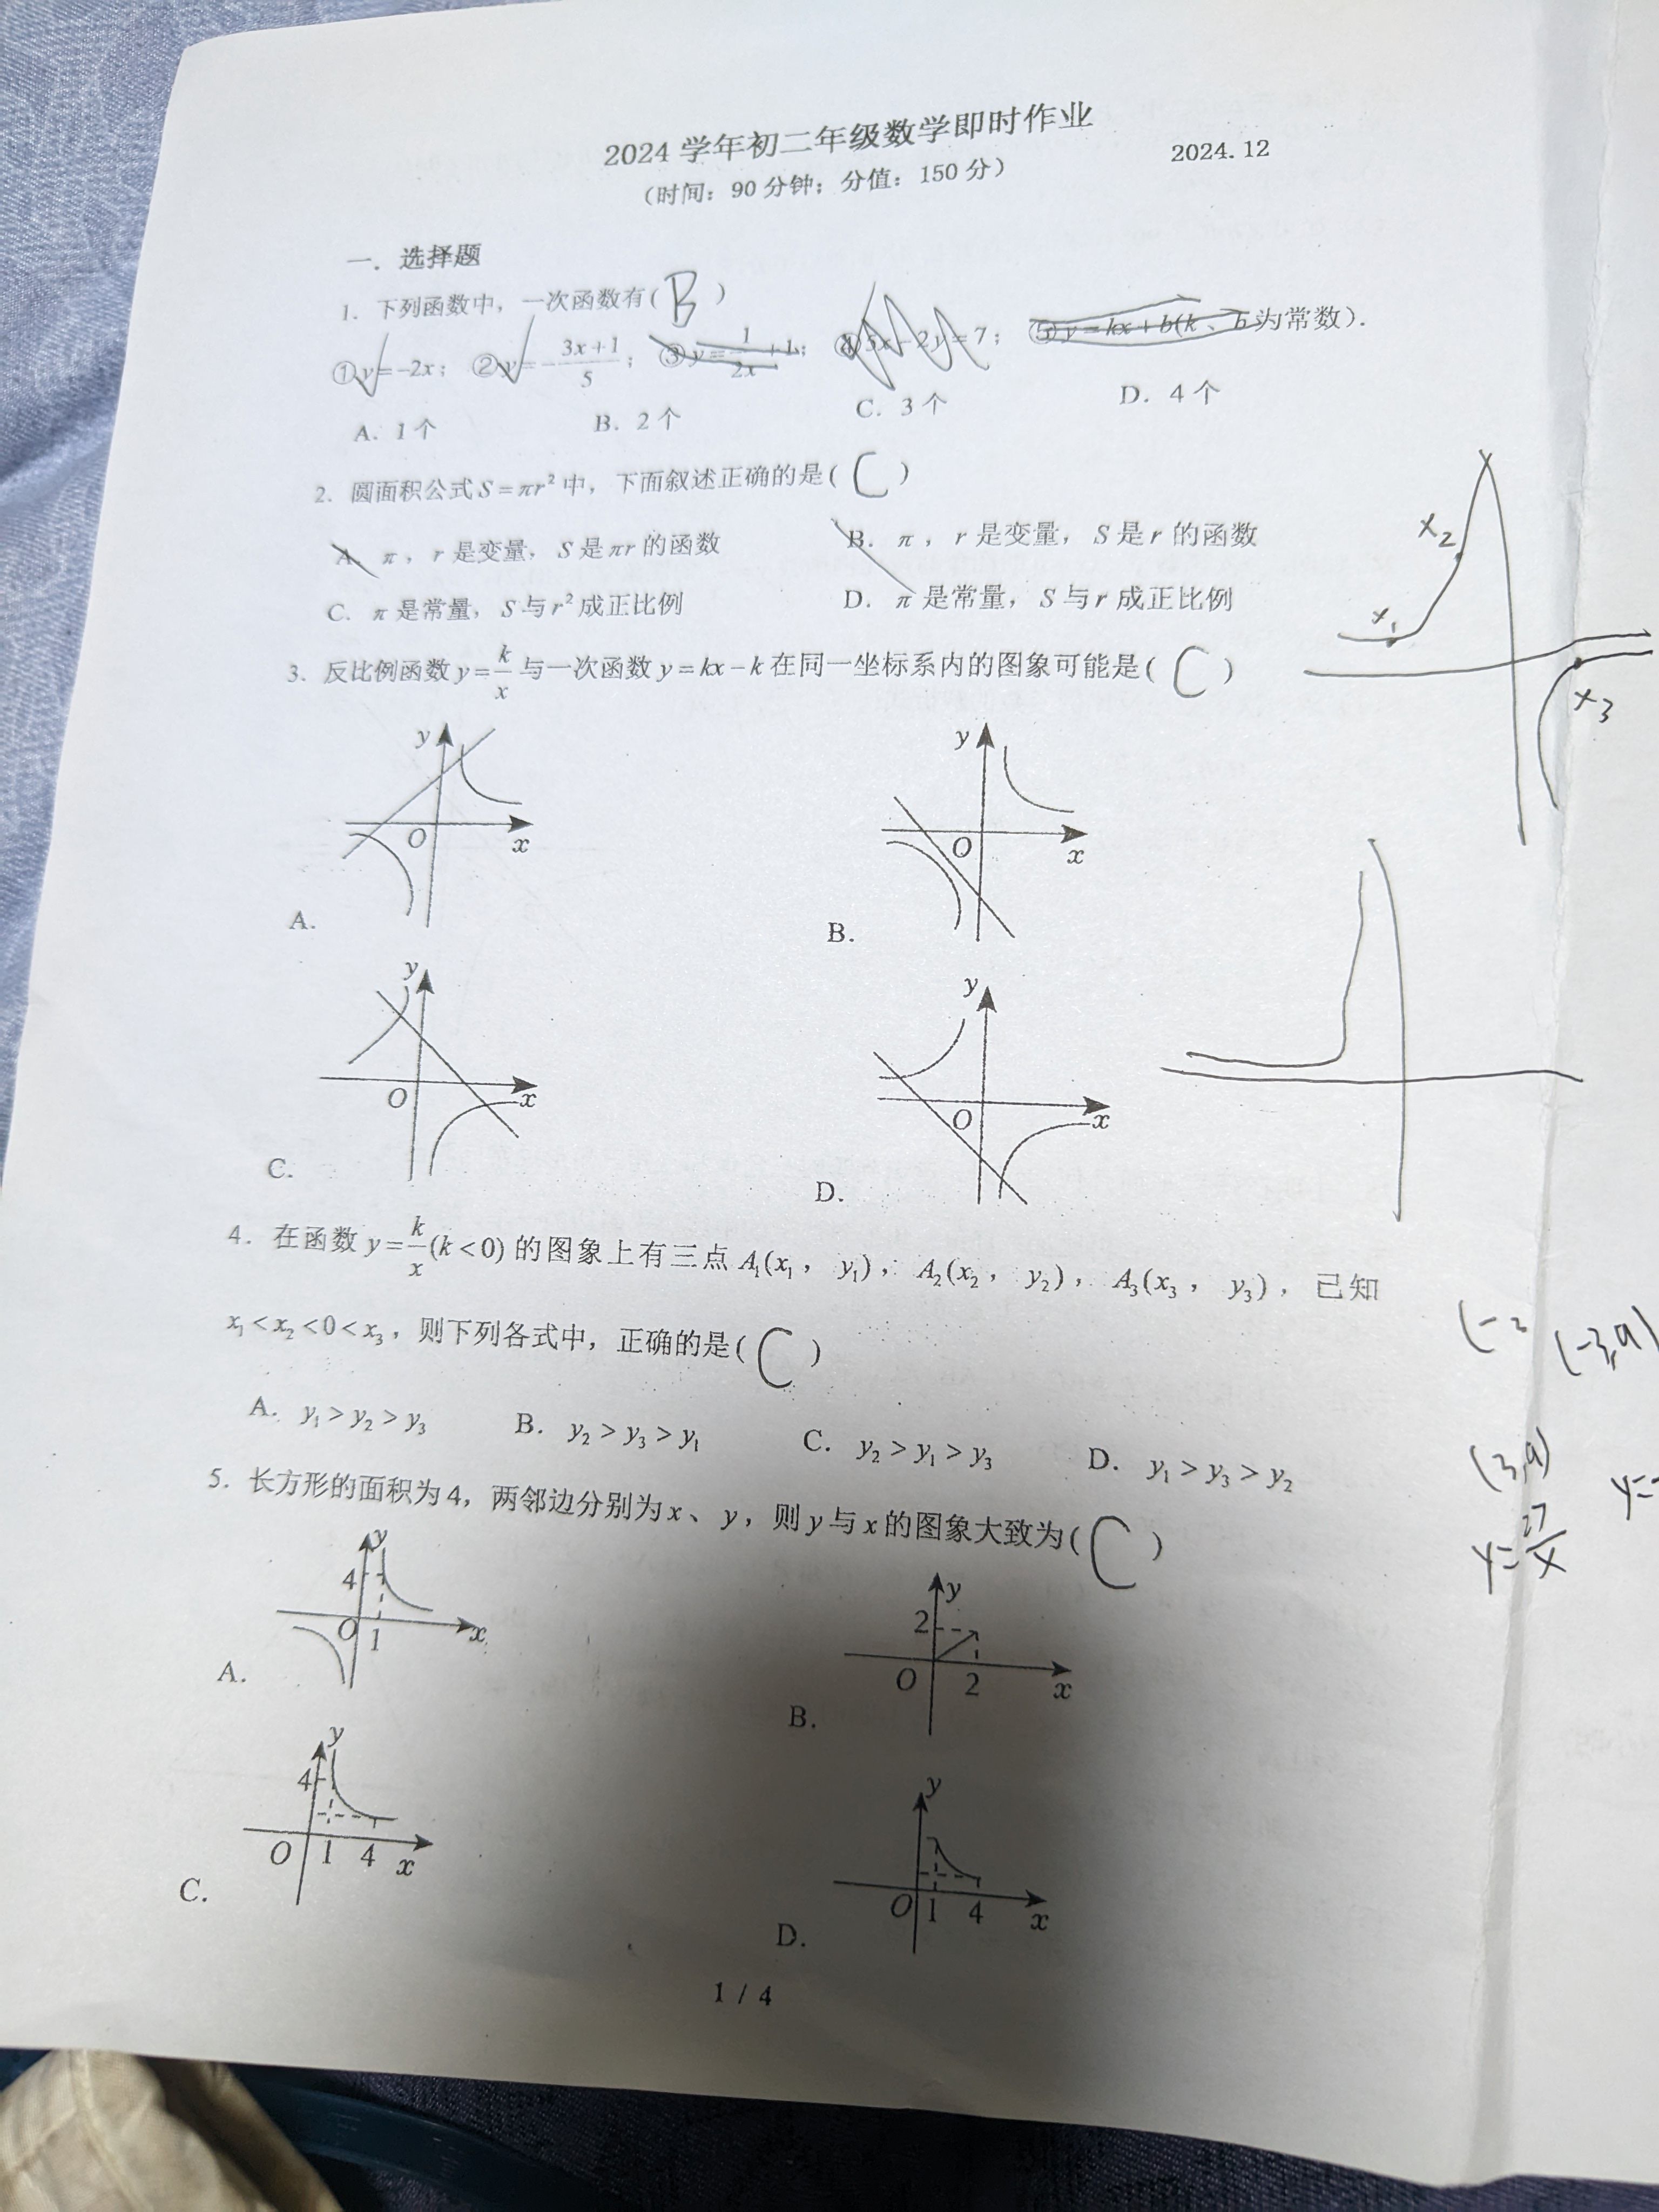 2024学年初二年级数学即时作业
2024.12
（时间：90分钟；分值：150分）
一．选择题
1．下列函数中，一次函数有( B )
①y=-2x；②y=-\frac{3x+1}{5}；③y=\frac{1}{2x}+1；④5x-2y=7；⑤y=kx+b(k、b为常数)．
A．1个 B．2个 C．3个 D．4个
2．圆面积公式S=πr²中，下面叙述正确的是( C )
A．π，r是变量，S是πr的函数 B．π，r是变量，S是r的函数
C．π是常量，S与r²成正比例 D．π是常量，S与r成正比例
3．反比例函数y=\frac{k}{x}与一次函数y=kx-k在同一坐标系内的图象可能是( C )
x₂
x₁
x₃
y y
O x O x
A. B.
y y
O x O x
C. D.
4．在函数y=\frac{k}{x}(k<0)的图象上有三点A₁(x₁，y₁)，A₂(x₂，y₂)，A₃(x₃，y₃)，已知
x₁<x₂<0<x₃，则下列各式中，正确的是( C )
(-3,9)
A．y₁>y₂>y₃ B．y₂>y₃>y₁ C．y₂>y₁>y₃ D．y₁>y₃>y₂
(3,9)
5．长方形的面积为4，两邻边分别为x、y，则y与x的图象大致为( C )
y=\frac{27}{x}
y=
y 4 O 1 x
A.
y 2 O 2 x
B.
y 4 O 1 4 x
C.
y O 1 4 x
D.
1 / 4